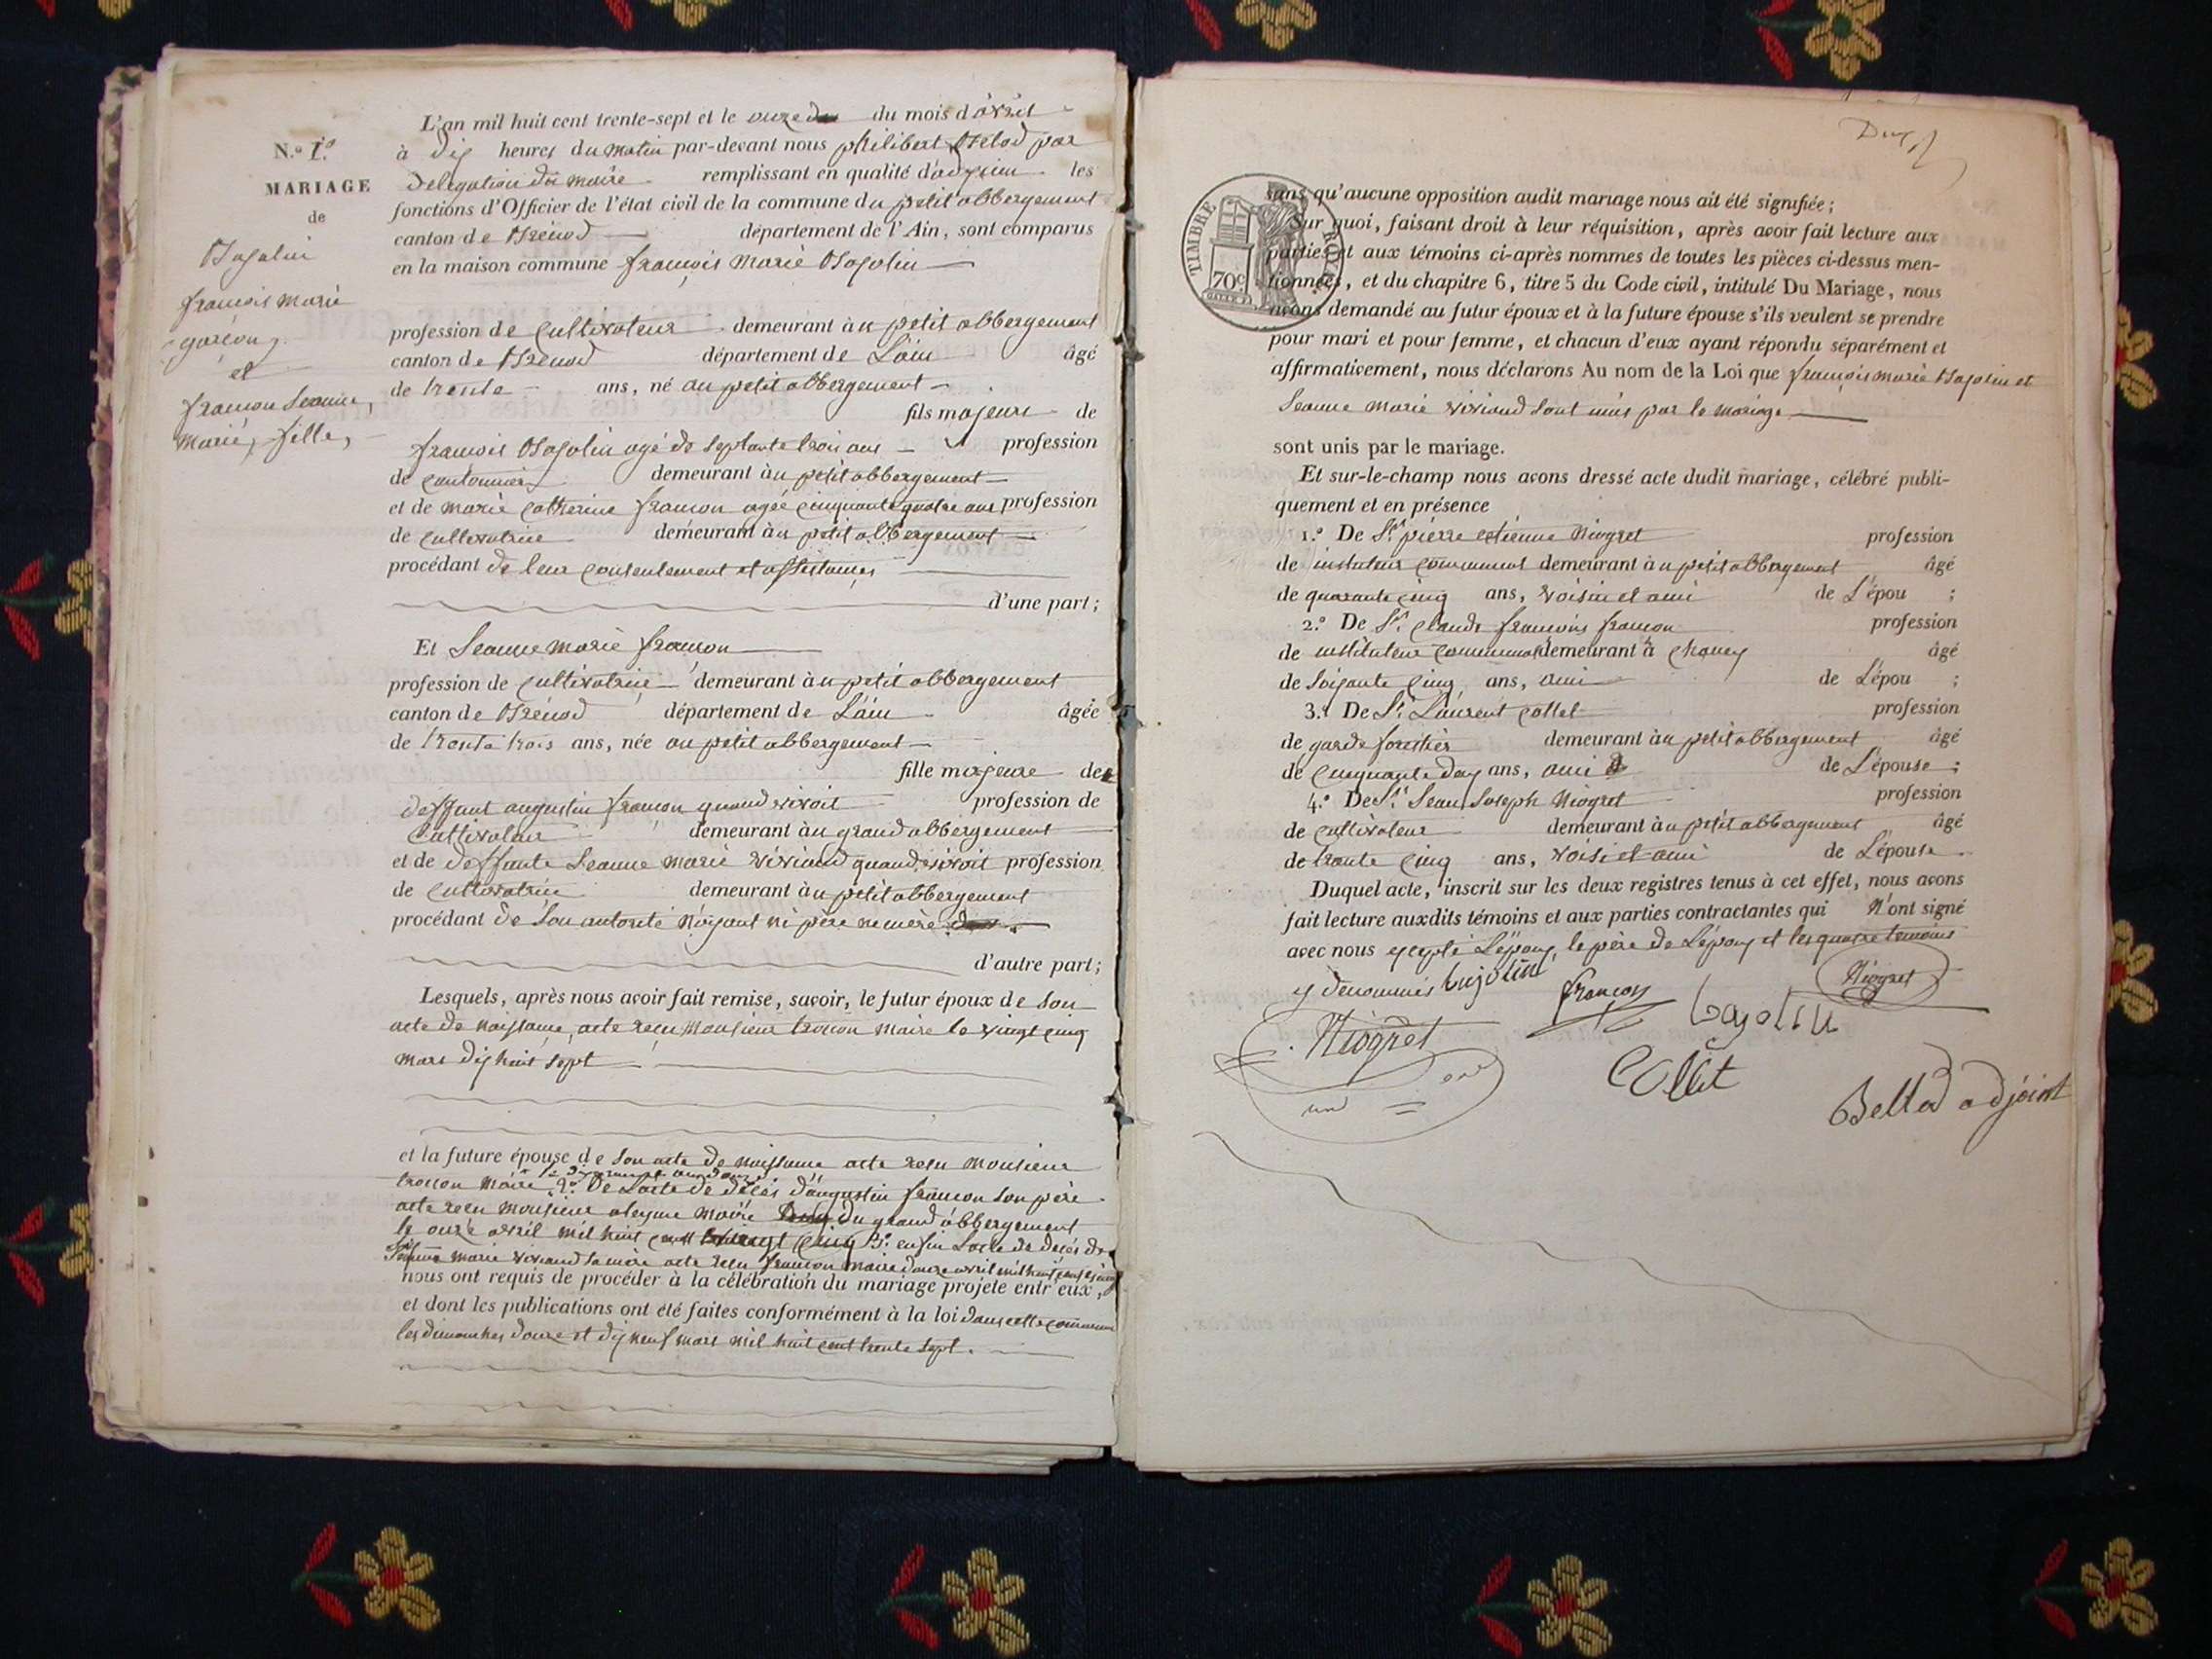 N.º 1.º
MARIAGE
de
Bajolin
françois marie
garçon
et
francon Jeanne
marie, fille,
L'an mil huit cent trente-sept et le onze du mois d'avril
à dix heures du matin par-devant nous philibert Belod par
délégation du maire remplissant en qualité d'adjoint les
fonctions d'Officier de l'état civil de la commune du petit abbergement
canton de Brénod département de l'Ain, sont comparus
en la maison commune françois marie Bajolin
profession de cultivateur demeurant au petit abbergement
canton de Brenod département de L'ain âgé
de trente ans, né au petit abbergement
fils majeur de
françois Bajolin agé de septante trois ans profession
de cantonnier demeurant au petit abbergement
et de marie catherine francon agée cinquante quatre ans profession
de cultivatrice demeurant au petit abbergement
procédant de leur consentement et assistances
d'une part;
Et Jeanne marie francon
profession de cultivatrice demeurant au petit abbergement
canton de Brénod département de L'ain âgée
de trente trois ans, née au petit abbergement
fille majeure de
deffunt augustin francon quand vivoit profession de
cultivateur demeurant au grand abbergement
et de deffunte Jeanne marie viviand quand vivoit profession
de cultivatrice demeurant au petit abbergement
procédant de son autorité n'ayant ni père ni mère
d'autre part;
Lesquels, après nous avoir fait remise, savoir, le futur époux de son
acte de naissance, acte reçu monsieur maire le vingt cinq
mars dix huit sept
et la future épouse de son acte de naissance acte reçu monsieur
maire 2.º De L'acte de décès d'augustin francon son père
acte reçu monsieur maire du grand abbergement
le onze avril mil huit cent vingt cinq 3.º enfin L'acte de décès de
Jeanne marie viviand sa mère acte reçu francon maire douze avril mil huit cent
nous ont requis de procéder à la célébration du mariage projeté entr'eux,
et dont les publications ont été faites conformément à la loi dans cette commune
les dimanches douze et dix neuf mars mil huit cent trente sept.
Deux
TIMBRE ROYAL
70c
sans qu'aucune opposition audit mariage nous ait été signifiée;
Sur quoi, faisant droit à leur réquisition, après avoir fait lecture aux
parties et aux témoins ci-après nommes de toutes les pièces ci-dessus men-
tionnées, et du chapitre 6, titre 5 du Code civil, intitulé Du Mariage, nous
avons demandé au futur époux et à la future épouse s'ils veulent se prendre
pour mari et pour femme, et chacun d'eux ayant répondu séparément et
affirmativement, nous déclarons Au nom de la Loi que françois marie Bajolin et
Jeanne marie viviand sont unis par le mariage
sont unis par le mariage.
Et sur-le-champ nous avons dressé acte dudit mariage, célébré publi-
quement et en présence
1.º De Sr. pierre etienne Niogret profession
de instituteur communal demeurant au petit abbergement âgé
de quarante cinq ans, voisin et ami de L'époux ;
2.º De Sr. claude françois francon profession
de instituteur communal demeurant à âgé
de soixante cinq ans, ami de L'époux ;
3.º De Sr. Laurent collet profession
de garde forestier demeurant au petit abbergement âgé
de cinquante deux ans, ami de L'épouse ;
4.º De Sr. Jean Joseph Niogret profession
de cultivateur demeurant au petit abbergement âgé
de trente cinq ans, voisi et ami de L'épouse.
Duquel acte, inscrit sur les deux registres tenus à cet effet, nous avons
fait lecture auxdits témoins et aux parties contractantes qui N'ont signé
avec nous excepté L'époux, le père de L'époux et les quatre temoins
y dénommés bujolin francon bajolin Niogret
Niogret
collet
Bellod adjoint